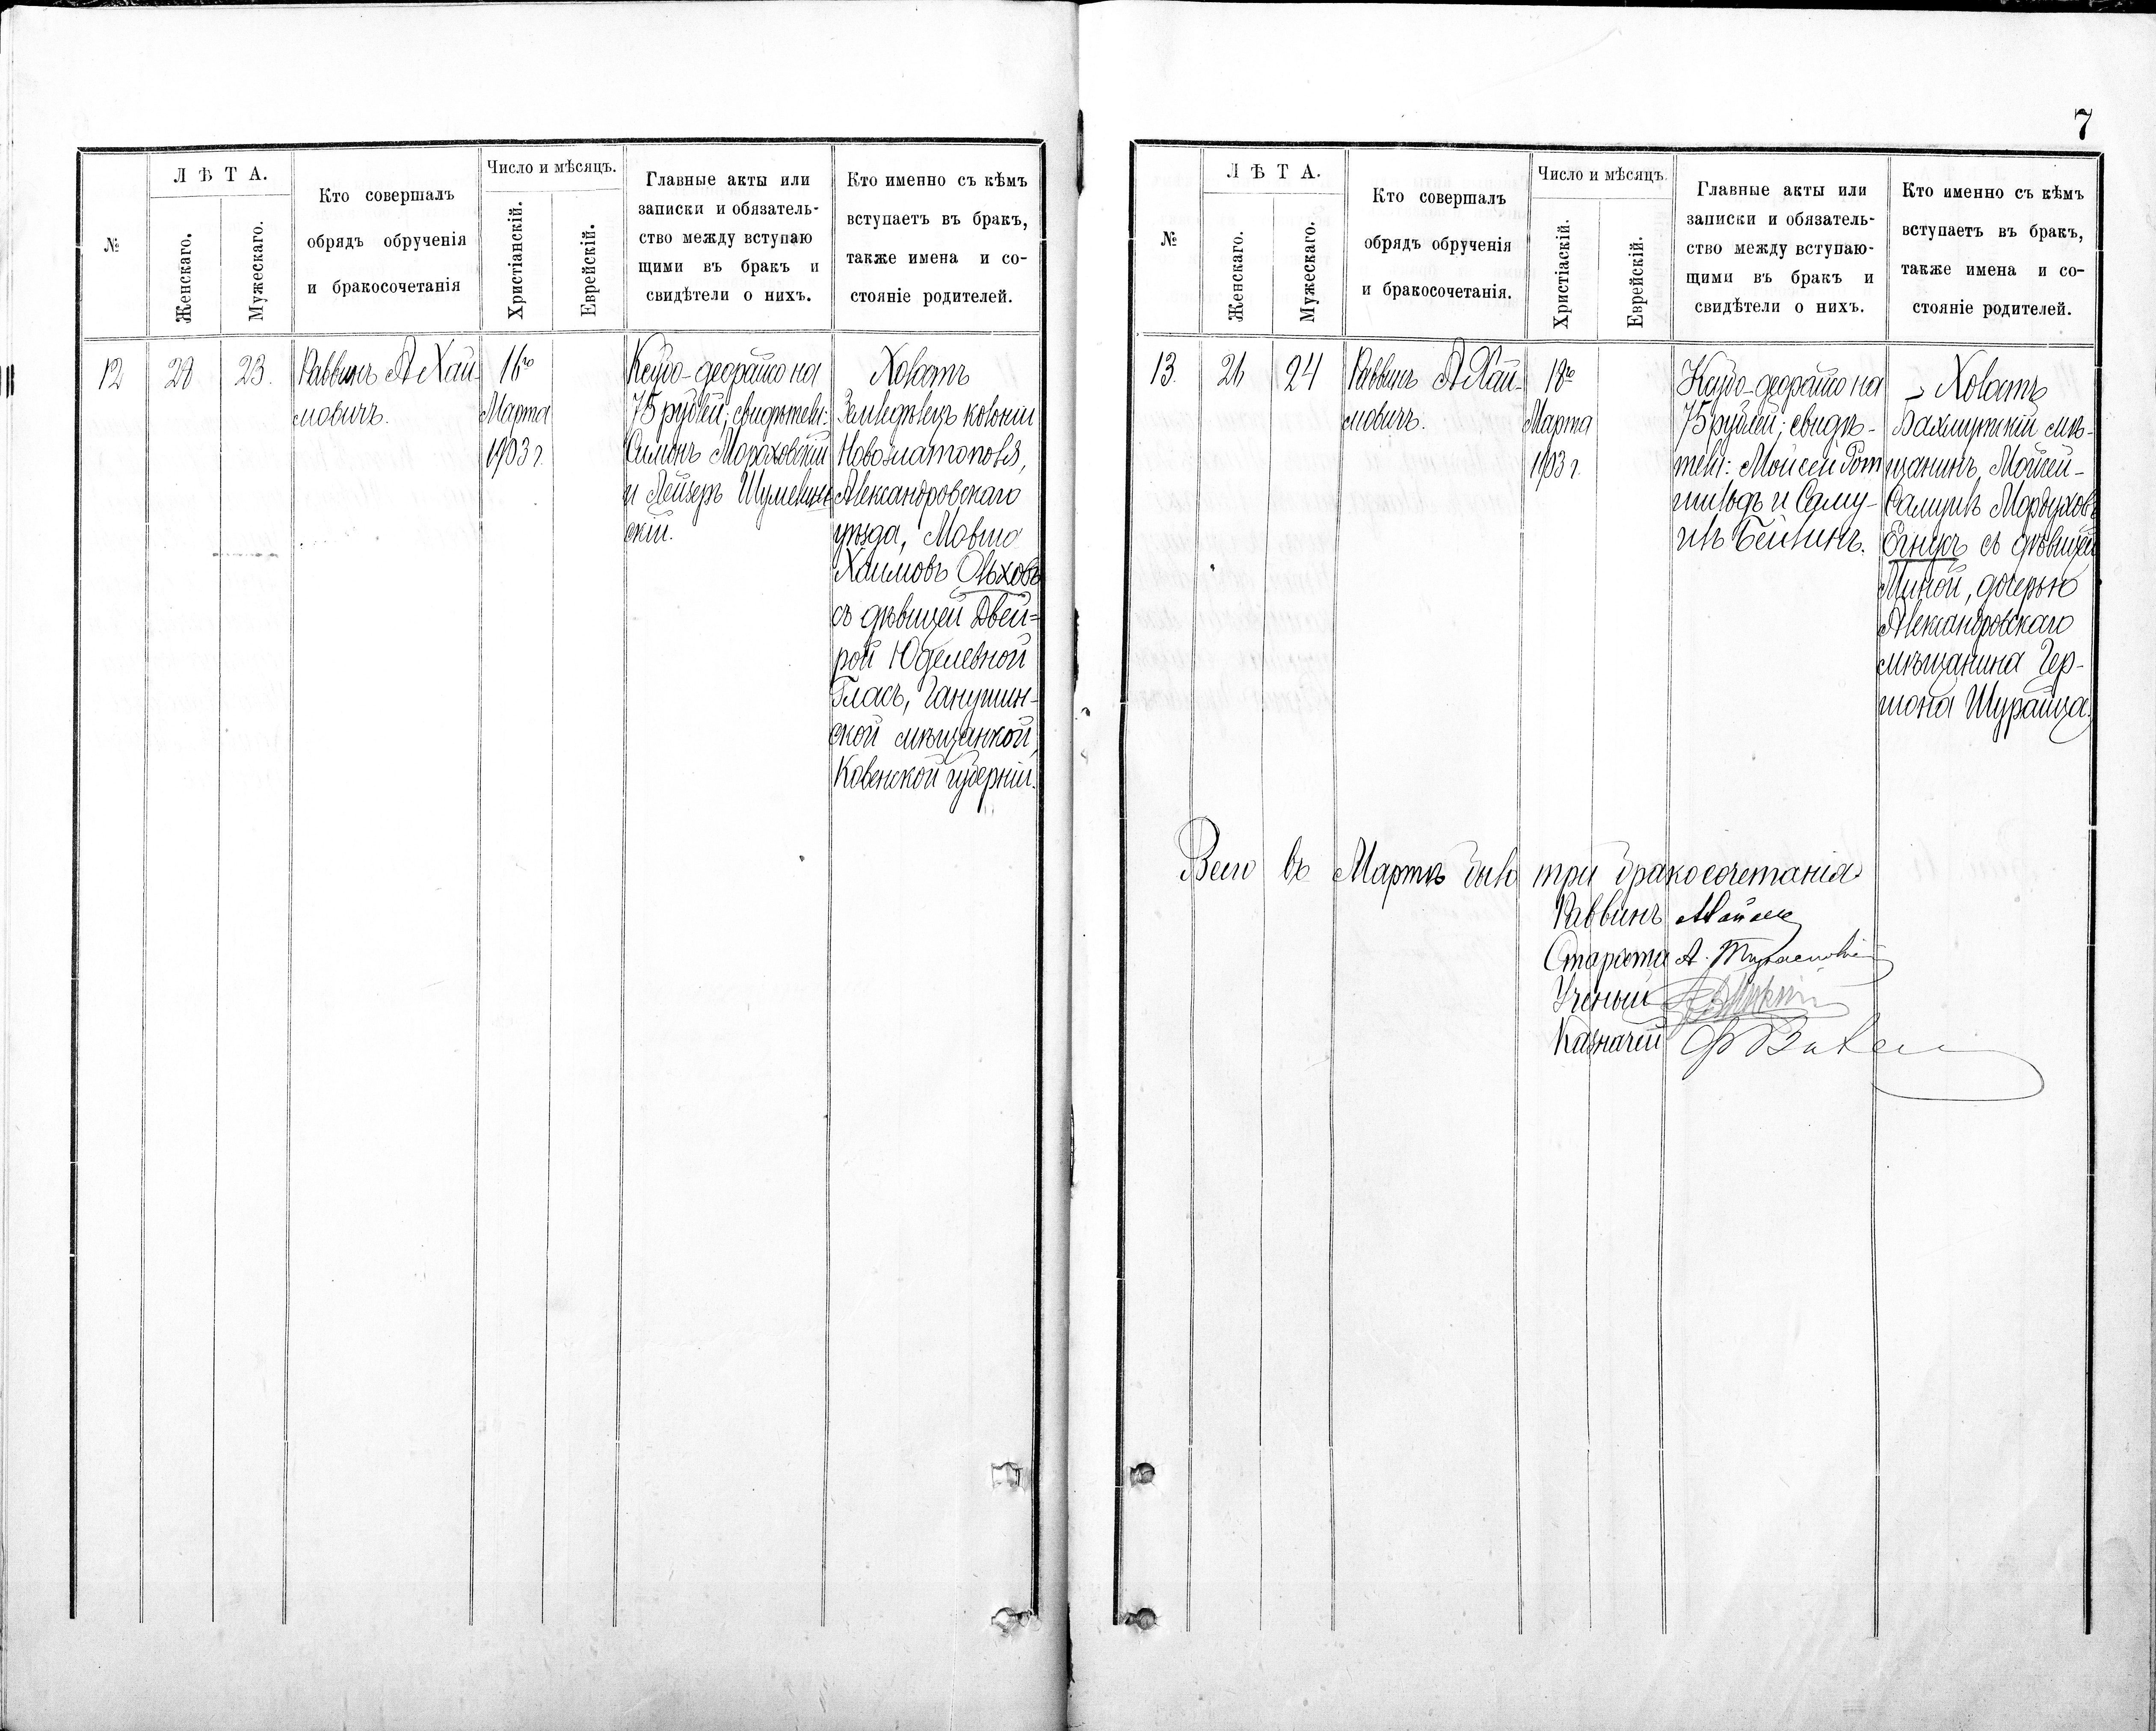 №
Л Ѣ Т А.
Женскаго.
Мужескаго.
Кто совершалъ
обрядъ обрученія
и бракосочетанія
Число и мѣсяцъ.
Христіанскій.
Еврейскій.
Главные акты или
записки и обязатель-
ство между вступаю
щими въ бракъ и
свидѣтели о нихъ.
Кто именно съ кѣмъ
вступаетъ въ бракъ,
также имена и со-
стояніе родителей.
12
28
23.
Раввинъ А Хай-
мовичъ.
16го
Марта
1903 г.
на
75 рублей; свидѣтели:
Симонъ Мораховскій
и Лейзеръ
скій.
Холостъ
Земледѣлецъ колоніи
Новозлатополя,
Александровскаго
уѣзда, Мовша
Хаимовъ Ольховъ
съ дѣвицей Двей-
рой Юделевной
Гласъ,
ской мѣщанкой,
Ковенской губерніи.
7
№
Л Ѣ Т А.
Женскаго.
Мужескаго.
Кто совершалъ
обрядъ обрученія
и бракосочетанія.
Число и мѣсяцъ.
Христіаскій.
Еврейскій.
Главные акты или
записки и обязатель-
ство между вступаю-
щими въ бракъ и
свидѣтели о нихъ.
Кто именно съ кѣмъ
вступаетъ въ бракъ,
также имена и со-
стояніе родителей.
13.
26
24
Раввинъ А Хай-
мовичъ.
18го
Марта
1903 г.
на
75 рублей; свидѣ-
тели: Мойсей Рот
шильдъ и Саму-
илъ Бейлинъ.
Холостъ
Бахмутскій мѣ-
щанинъ, Мойсей-
Самуилъ Мордухов.
съ дѣвицей
Миной, дочерью
Александровскаго
мѣщанина Гер-
шона Шурайца.
Всего въ Мартѣ было три бракосочетанія
Раввинъ
Староста А.
Ученый
Казначей